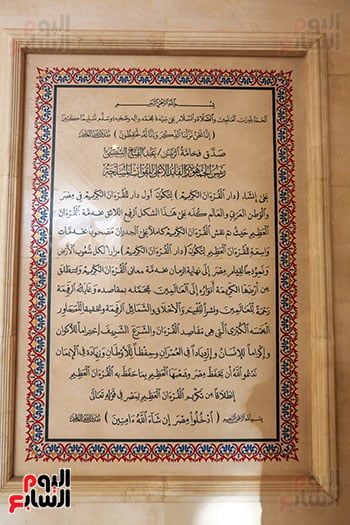 اليوم السابع
بسم الله الرحمن الرحيم
الحمد لله رب العالمين والصلاة والسلام على سيدنا محمد وآله وصحبه وسلم تسليما كثيرا
﴿ إنا نحن نزلنا الذكر وإنا له لحافظون ﴾ صدق الله العظيم
صدق فخامة الرئيس / عبد الفتاح السيسي
رئيس الجمهورية القائد الأعلى للقوات المسلحة
على إنشاء (دار القرآن الكريم) لتكون أول دار للقرآن الكريم في مصر
والوطن العربي والعالم كله على هذا الشكل الرفيع اللائق بعظمة القرآن
العظيم حيث تم نقش القرآن كاملا على الجدران مصحوبا بخدمات
واسعة للقرآن العظيم لتكون (دار القرآن الكريم) مزارا لكل شعوب الأرض
ونموذجا لقيام مصر إلى نهاية الزمان بخدمة معاني القرآن الكريم وتنطلق
من أرضها الكريمة أنواره إلى العالمين محتفية بمقاصده وغاياته الرفيعة
رحمة للعالمين ونشرا للقيم والأخلاق والشمائل الرفيعة وتحقيقا للمحاور
الخمسة الكبرى التي هي مقاصد القرآن والشرع الشريف احتراما للأكوان
وإكراما للإنسان وازديادا في العمران وحفظا للأوطان وزيادة في الإيمان
ندعو الله أن يحفظ مصر وشعبها العظيم بما حفظ به القرآن العظيم
انطلاقا من تكريم القرآن العظيم لمصر في قوله تعالى
بسم الله الرحمن الرحيم ﴿ ادخلوا مصر إن شاء الله آمنين ﴾ صدق الله العظيم
اليوم السابع
اليوم السابع